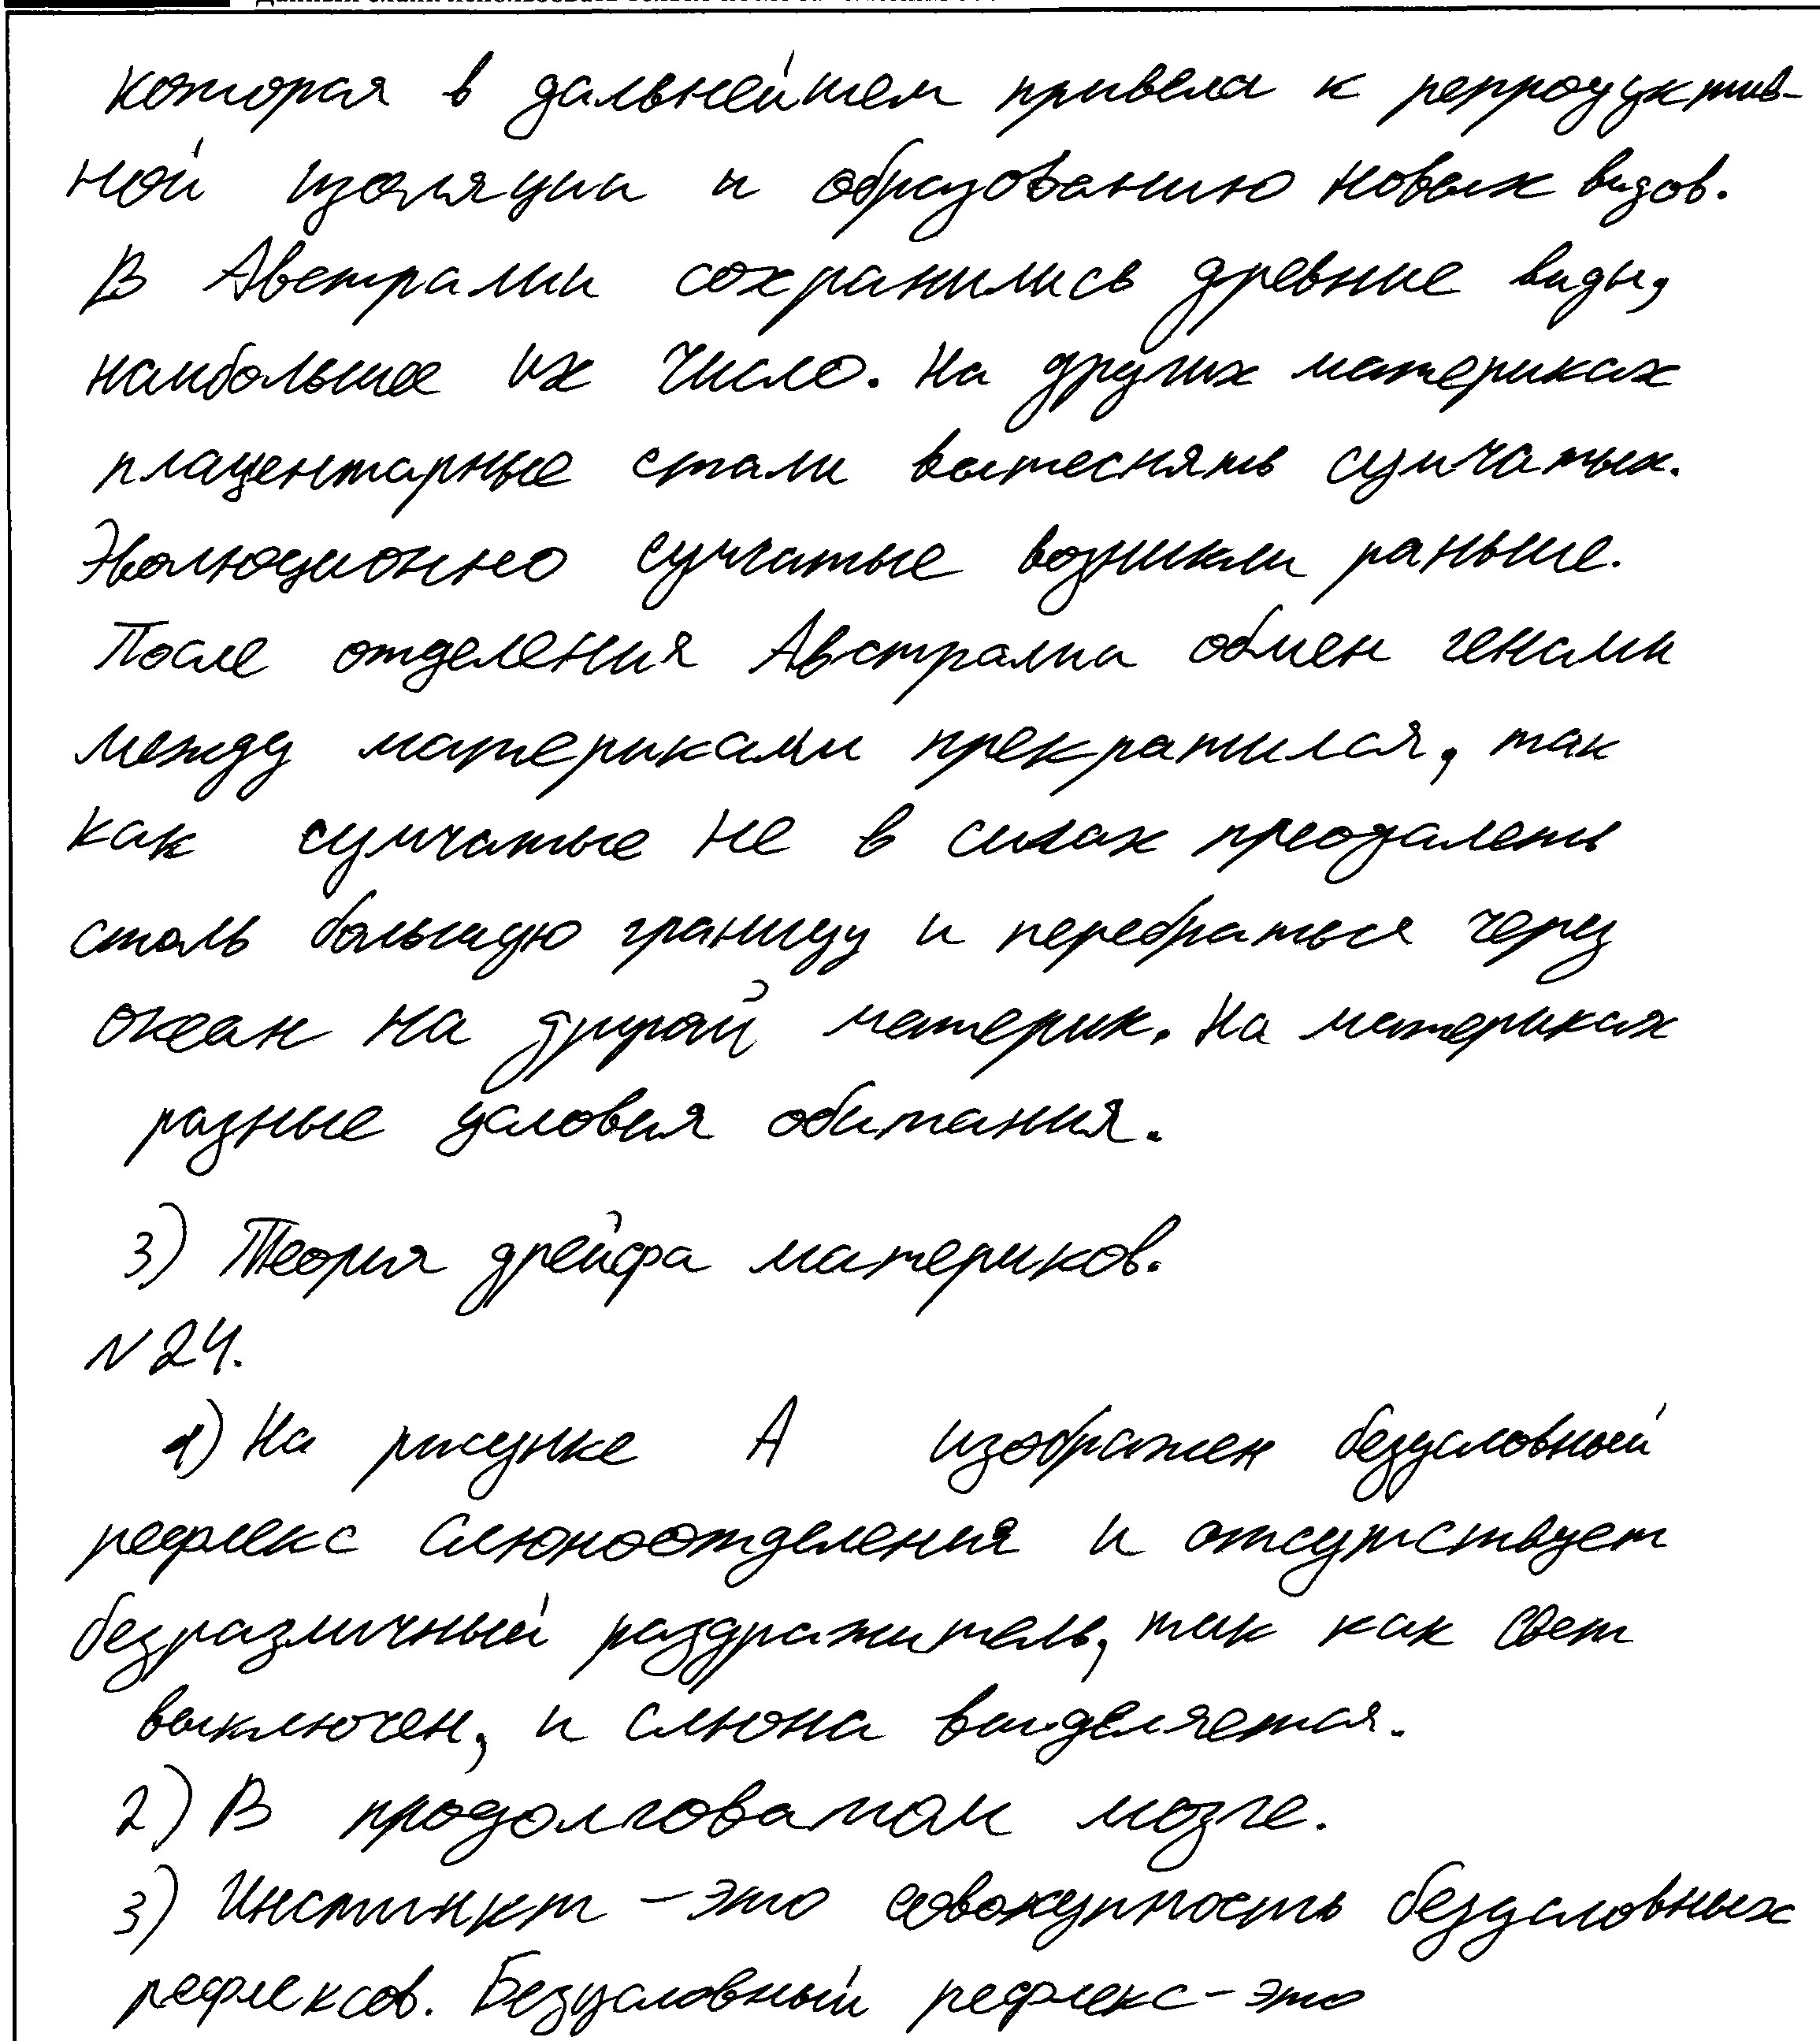 которая в дальнейшем привела к репродуктив-
ной изоляции и образованию новых видов.
В Австралии сохранились древние виды,
наибольшее их число. На других материках
плацентарные стали вытеснять сумчатых.
Эволюционно сумчатые возникли раньше.
После отделения Австралии обмен генами
между материками прекратился, так
как сумчатые не в силах преодолеть
столь большую границу и перебраться через
океан на другой материк. На материках
разные условия обитания.
3) Теория дрейфа материков.
N 24.
1) На рисунке А изображен безусловный
рефлекс слюноотделения и отсутствует
безразличный раздражитель, так как свет
выключен, и слюна выделяется.
2) В продолговатом мозге.
3) Инстинкт – это совокупность безусловных
рефлексов. Безусловный рефлекс – это